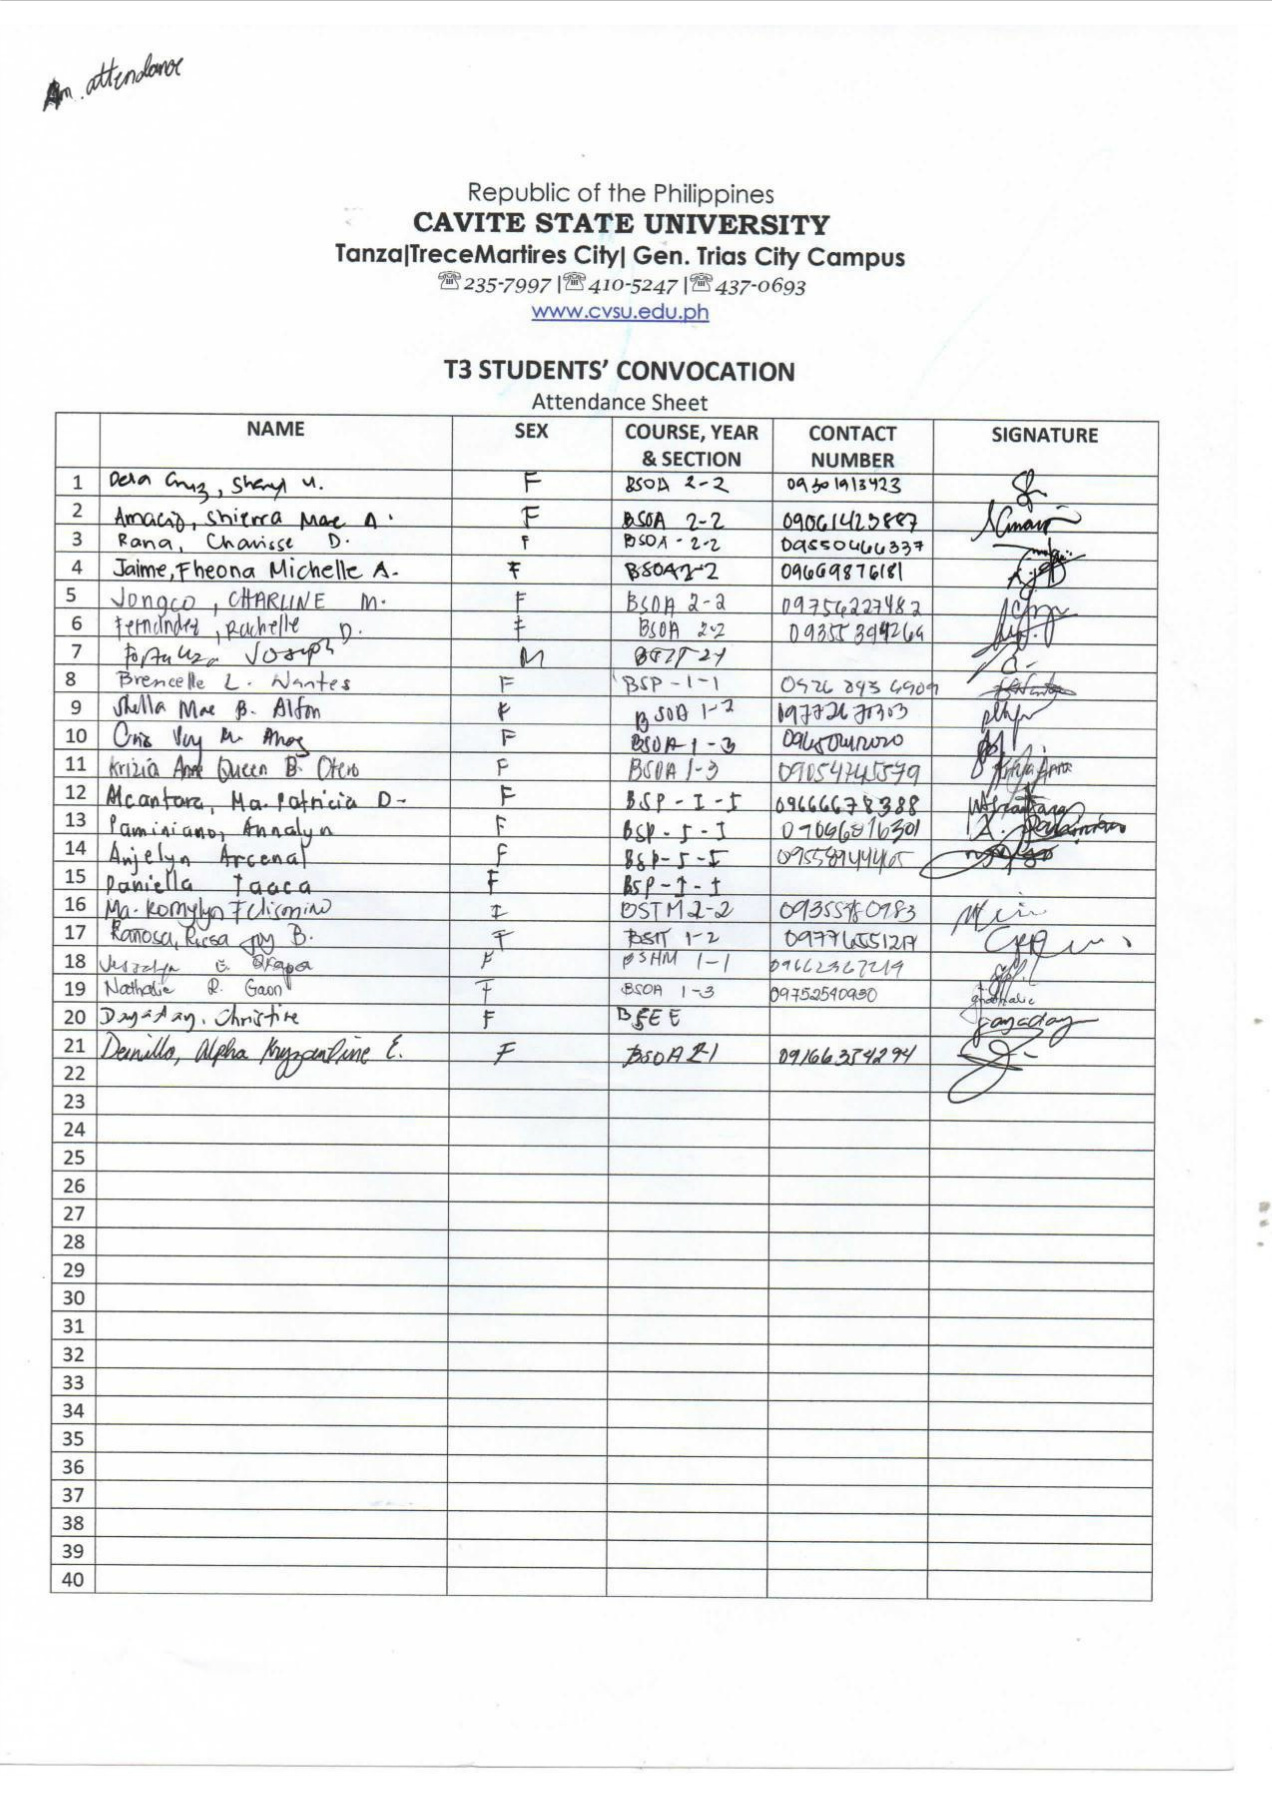 Am attendance
Republic of the Philippines
CAVITE STATE UNIVERSITY
Tanza|TreceMartires City| Gen. Trias City Campus
☏235-7997 |☏410-5247 |☏437-0693
www.cvsu.edu.ph
T3 STUDENTS’ CONVOCATION
Attendance Sheet
NAME SEX COURSE, YEAR & SECTION CONTACT NUMBER SIGNATURE
1 Dela Cruz, Sheryl M. F BSOA 2-2 09301913423
2 Amacio, Shierra Mae A. F BSOA 2-2 09061423887
3 Rana, Charisse D. F BSOA-2-2 09550466337
4 Jaime, Fheona Michelle A. F BSOA 2-2 09669876181
5 Jongco, CHARLINE M. F BSOA 2-2 09756227482
6 Fernandez, Rachelle D. F BSOA 2-2 09355394269
7 Joseph M
8 Brencelle L. Nantes F BSP-1-1
9 Shella Mae B. Alfon F BSOA 1-2 09772670303
10 F BSOA-1-3
11 Krizia Anne Queen B. Otero F BSOA 1-3 09054745579
12 Alcantara, Ma. Patricia D- F BSP-I-I 09666678388
13 Paminiano, Annalyn F BSP-I-I
14 Anjelyn Arcenal F BSP-I-I
15 Daniella Taaca F BSP-I-I
16 Ma. Romylyn F 2-2
17 Joy B. F BSIT 1-2
18 F BSHM 1-1 09662367219
19 Nathalie R. Gaon F BSOA 1-3 09752540930
20 Christine F BSEE
21 Alpha E. F BSOA 2-1 09166354294
22
23
24
25
26
27
28
29
30
31
32
33
34
35
36
37
38
39
40